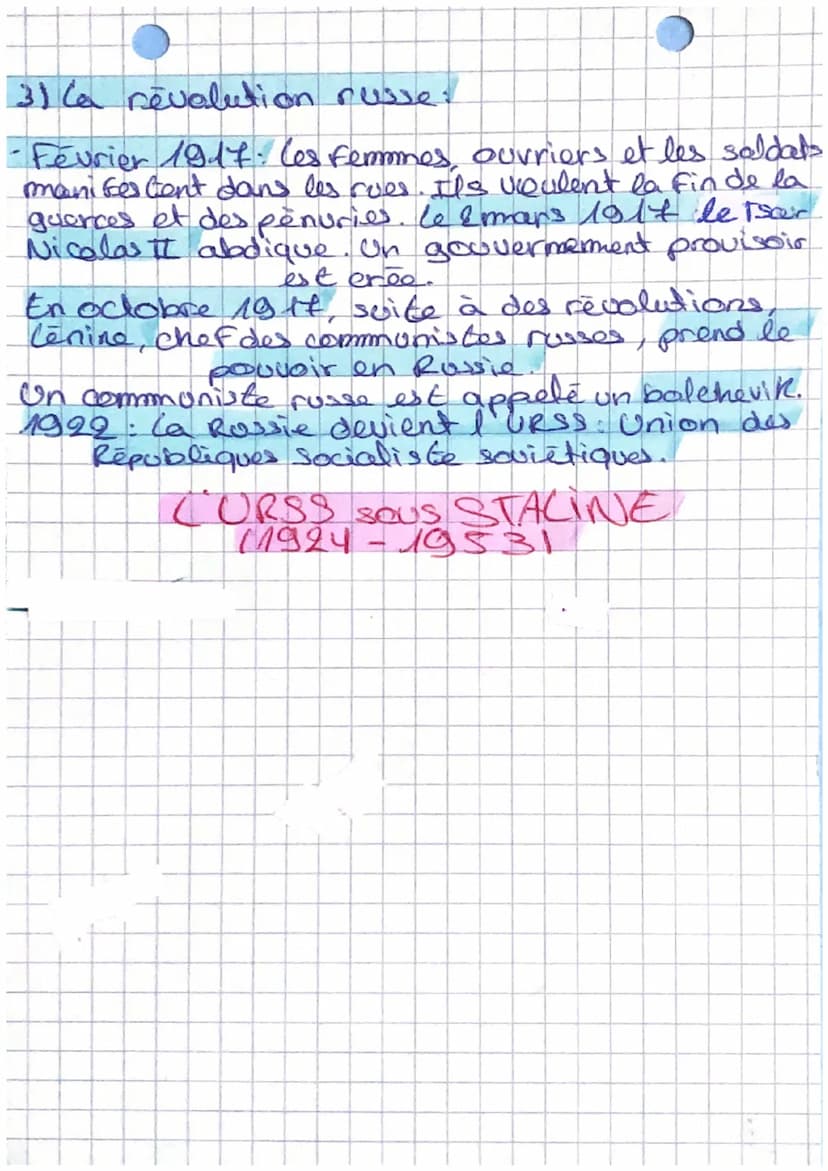 3) La révolution russe:
- Février 1917: les femmes, ouvriers et les soldats
manifestent dans les rues. Ils veulent la fin de la
guerres et des pénuries. Le 2 mars 1917 le Tsar
Nicolas II abdique. Un gouvernement provisoir
est crée.
En octobre 1917, suite à des révolutions,
Lénine, chef des communistes russes, prend le
pouvoir en Russie.
Un communiste russe est appelé un bolchevik.
1922: La Russie devient l'URSS: Union des
Républiques Socialiste soviétiques.
L'URSS sous STALINE
(1924-1953)